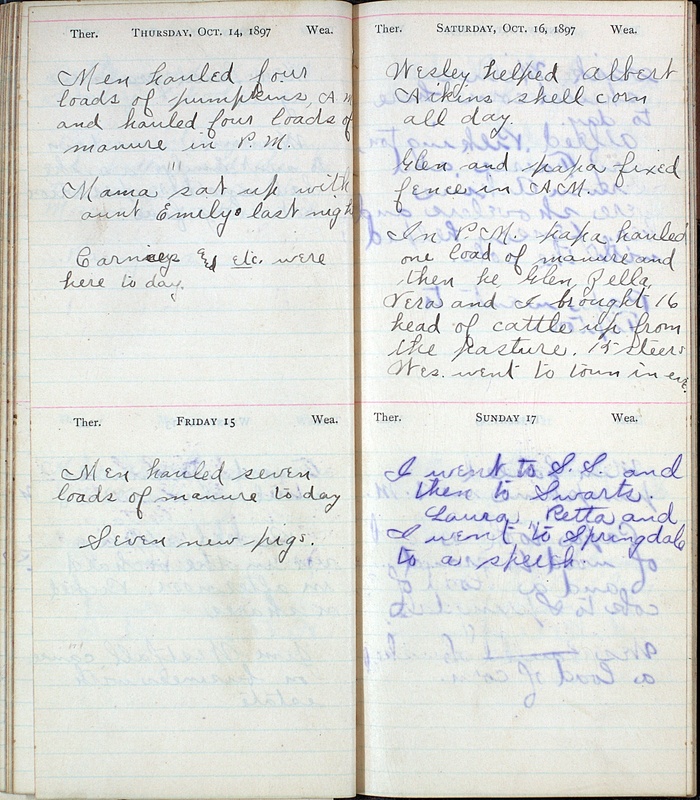 Ther. THURSDAY, OCT. 14, 1897 Wea.
Men hauled four
loads of pumpkins, A.M.
and hauled four loads of
manure in P.M.
Mama sat up with
aunt Emily last night
here to day.
etc. were
Ther. FRIDAY 15 Wea.
Men hauled seven
loads of manure to day
Seven new pigs.
Ther. SATURDAY, OCT. 16, 1897 Wea.
Wesley helped Albert
Aikins shell corn
all day.
Glen and papa fixed
fence in A.M.
In P.M. papa hauled
one load of manure and
then he Glen,
Vera and I brought 16
head of cattle up from
the pasture. 15 steers
Wes. went to town in eve.
Ther. SUNDAY 17 Wea.
I went to S.S. and
then to Swarts.
Laura, Petta and
I went to Springdale
to a speech.